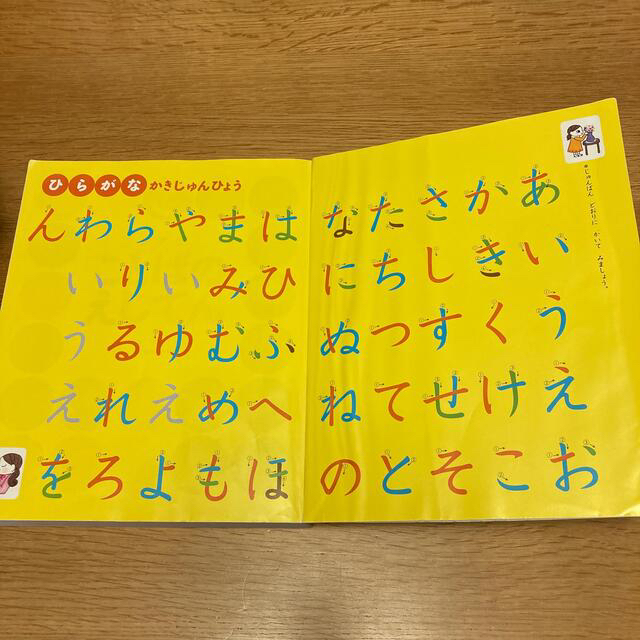 ひらがな かきじゅんひょう
●じゅんばん どおりに かいて みましょう。
あいうえお
かきくけこ
さしすせそ
たちつてと
なにぬねの
はひふへほ
まみむめも
やいゆえよ
らりるれろ
わいうえを
ん